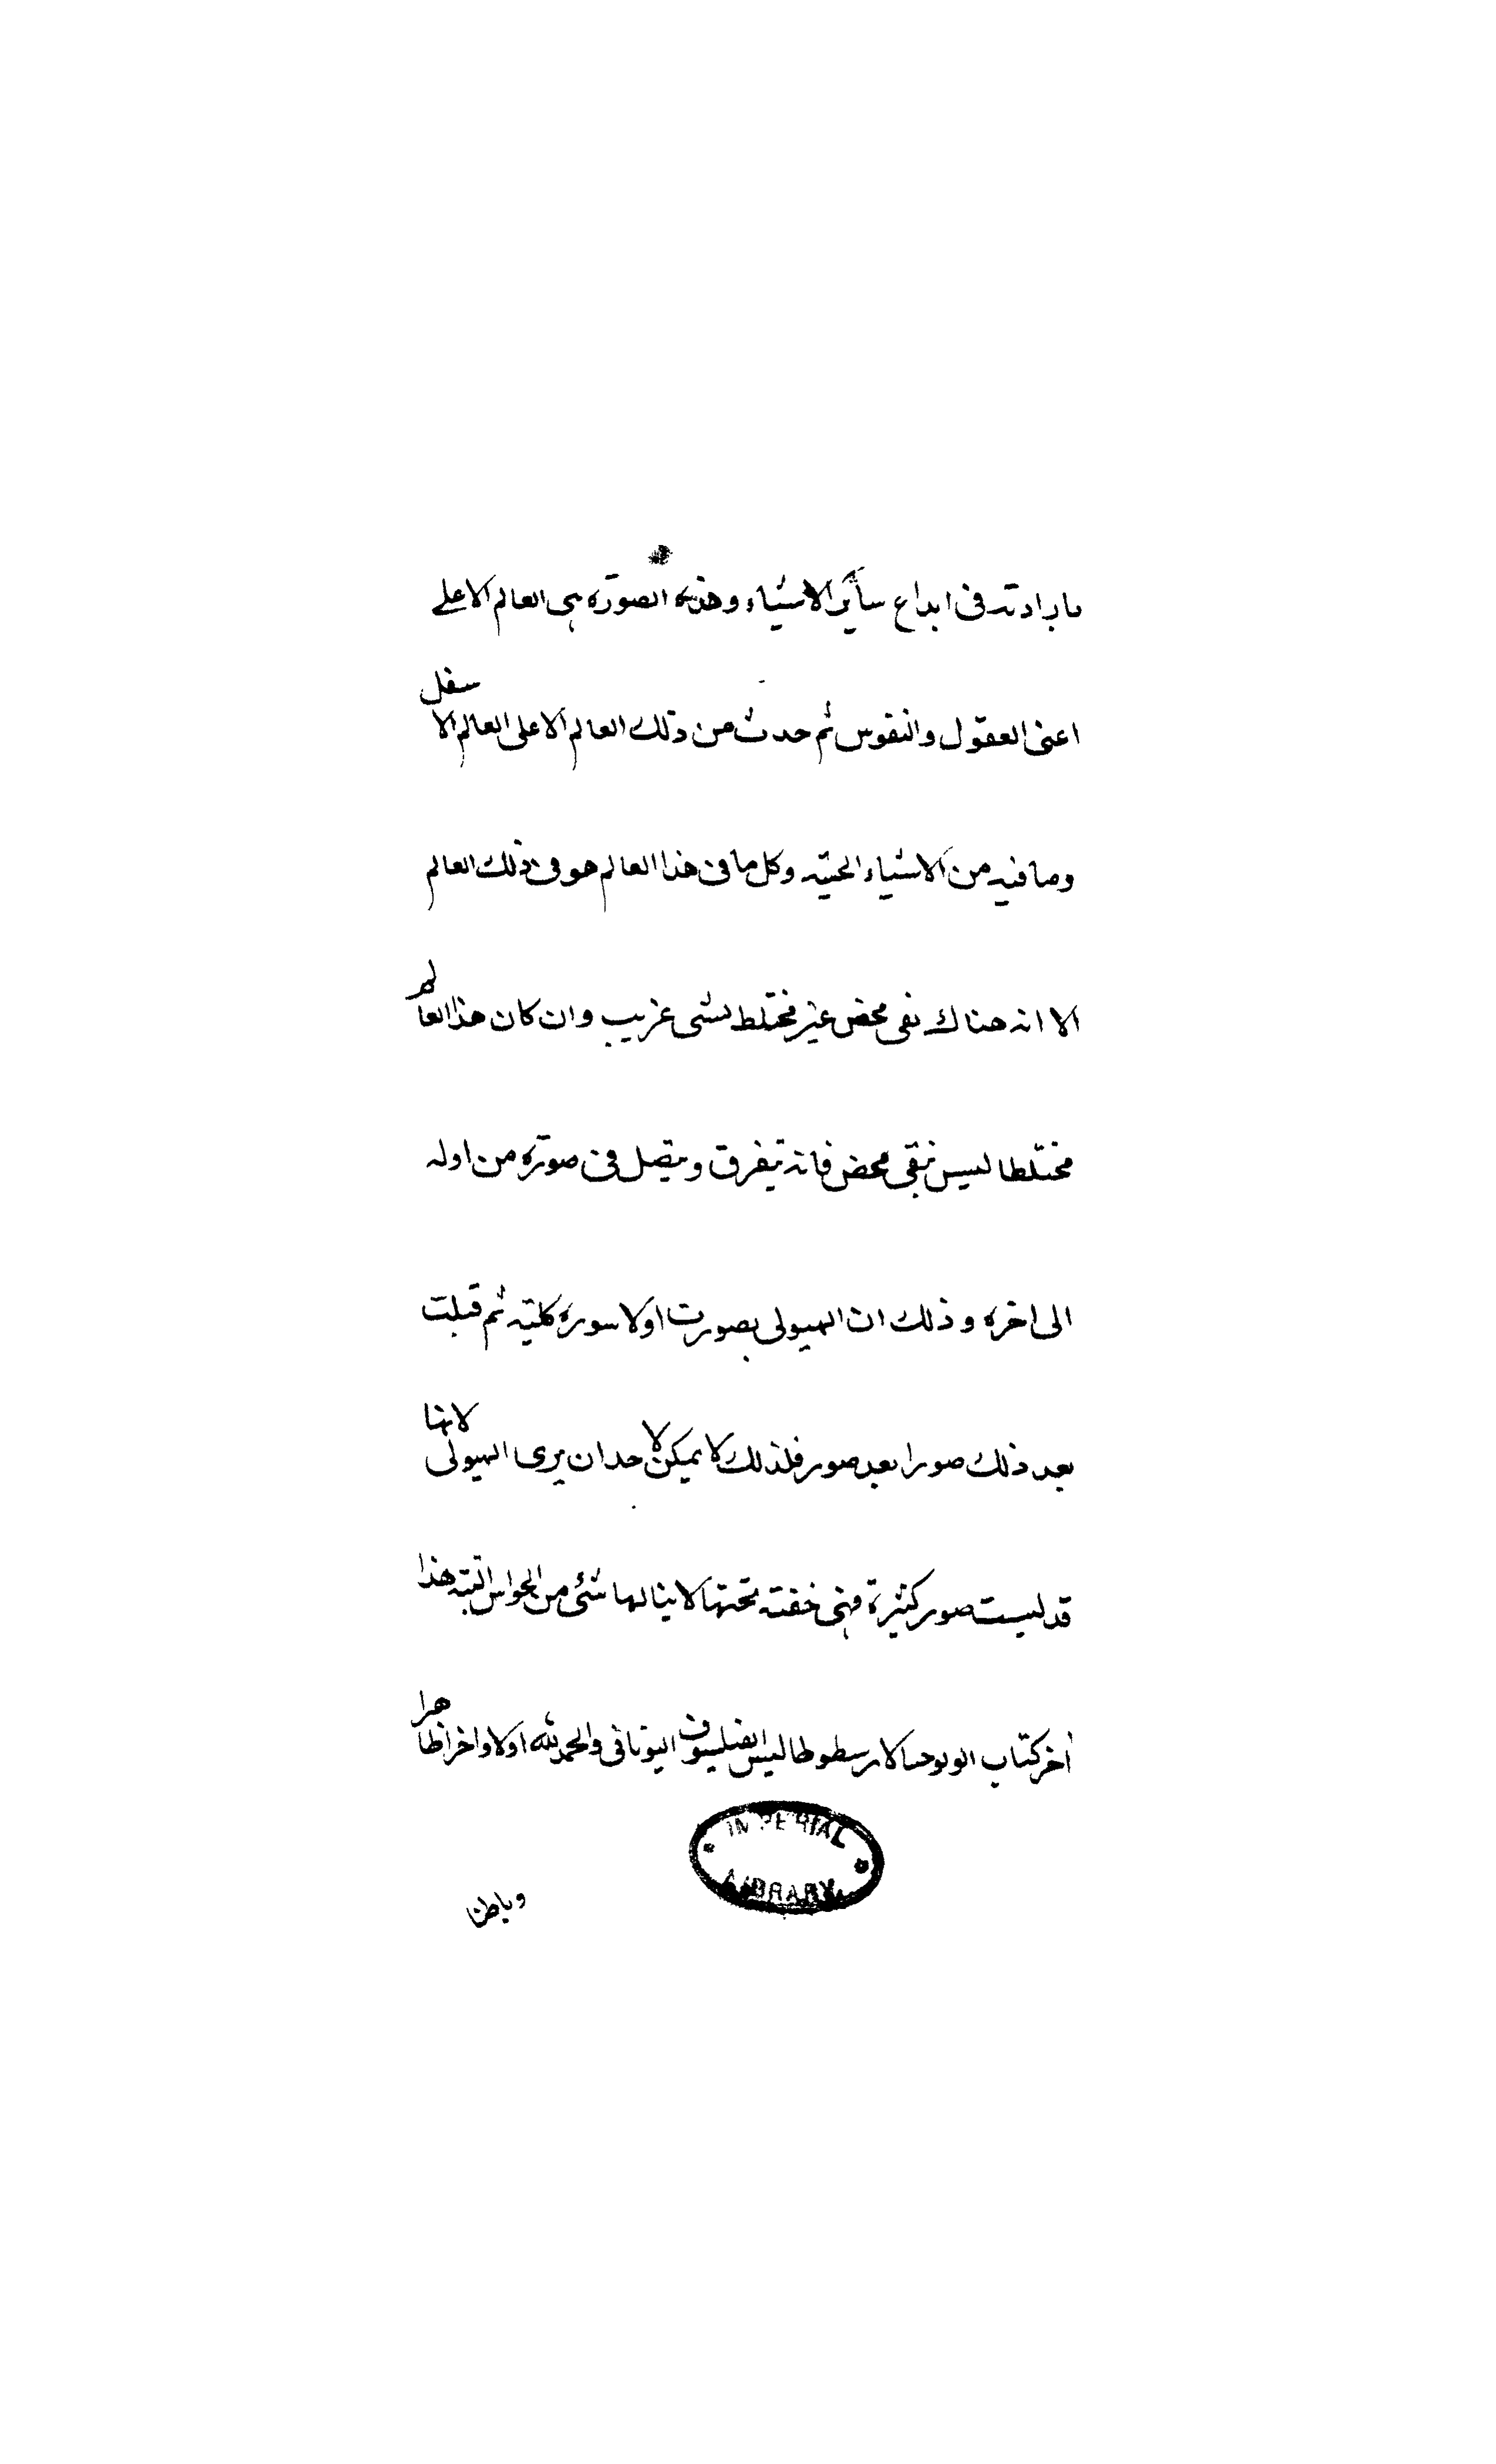 بارادته فى ابداع سأير الاشياء وهذه الصورة هى العالم الاعلے
اعنى العقول والنفوس ثم حدث من ذلك العالم الاعلى العالم الاسفل
وما فيه من الاشياء الحسّيه وكل ما فى هذا العالم هو فى ذلك العالم
الا انه هناك نقى محض غير مختلط بشى غريب وان كان هذا العالم
مختلطا ليس بنقى محض فانه يتفرق ويتصل فى صورة من اوله
الى اخره وذلك ان الهيولى بصورت اولا سورة كليّه ثم قبلت
بعد ذلك صورا بعد صور فلذلك لا يمكن لاحد ان يرى الهيولى لانها
قد لبست صور كثيرة فهى خفته تحتها لا ينالها شئى من الحواس البته هذا
اخر كتاب الولوحيا لارسطوطاليس الفيلسوف اليونانى والحمد لله اولا واخرا ظاهرا
وباطنا
IMPERIAL
LIBRARY